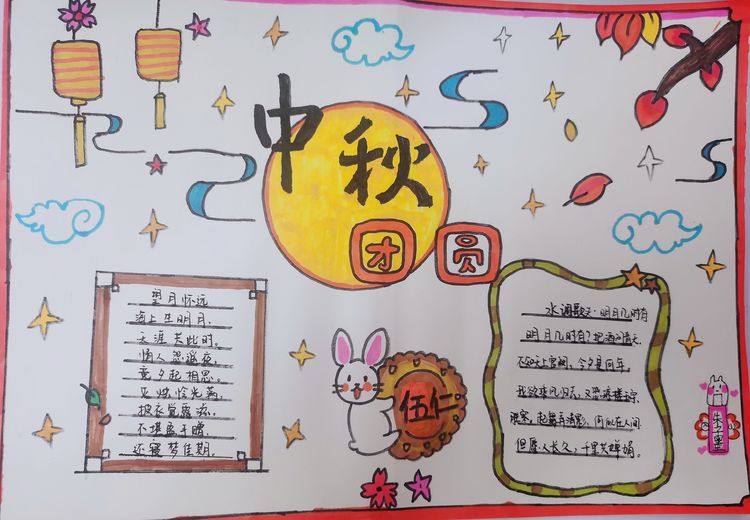 中秋
团圆
望月怀远
海上生明月，
天涯共此时。
情人怨遥夜，
竟夕起相思。
灭烛怜光满，
披衣觉露滋。
不堪盈手赠，
还寝梦佳期。
伍仁
水调歌头·明月几时有
明月几时有？把酒问青天。
不知天上宫阙，今夕是何年。
我欲乘风归去，又恐琼楼玉宇
起舞弄清影，何似在人间
但愿人长久，千里共婵娟。